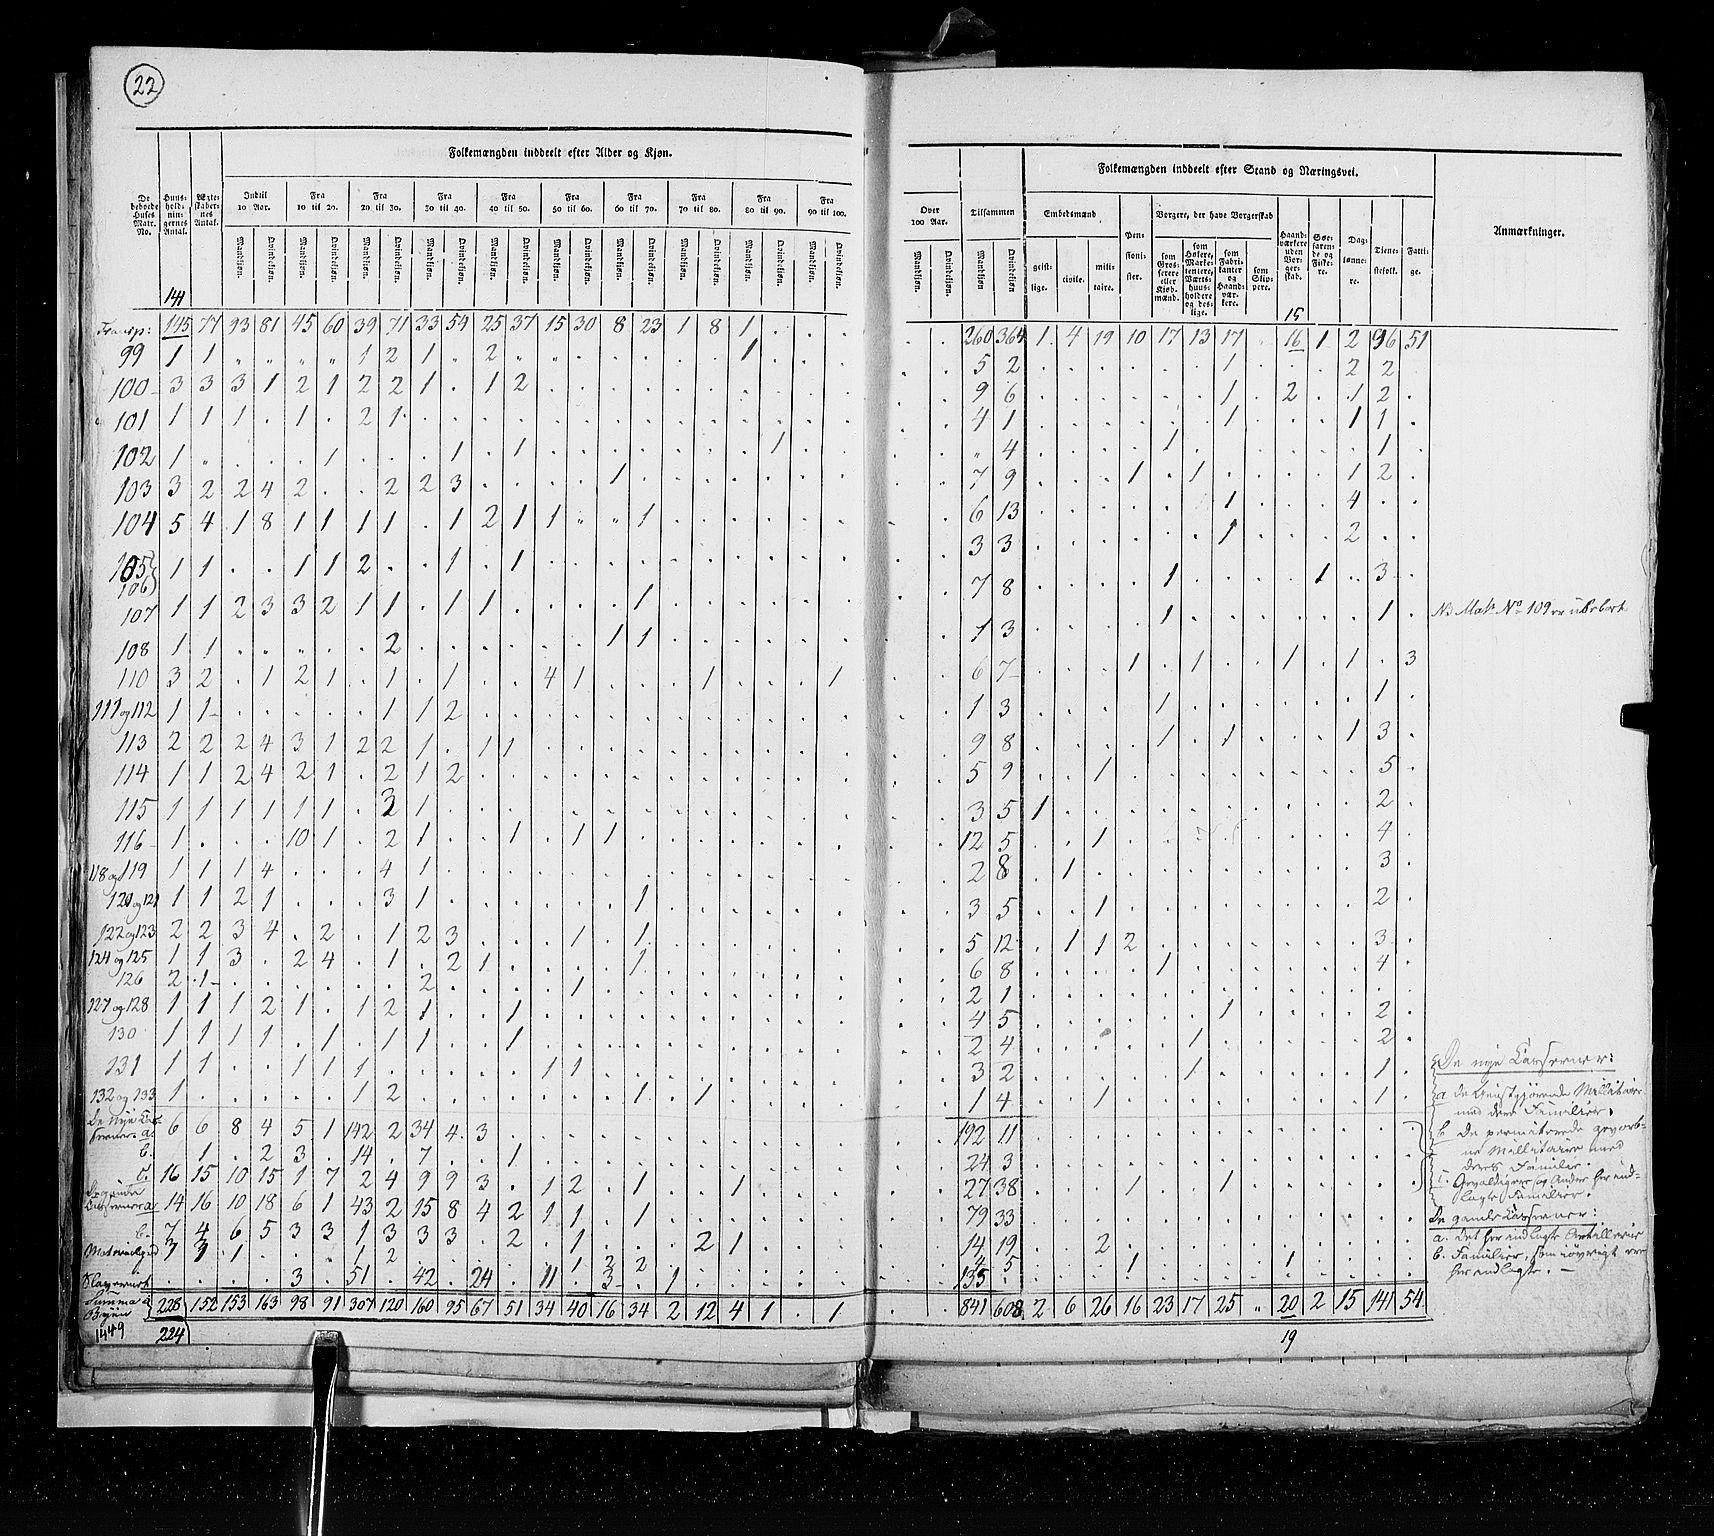 22
Folkemængden inddeelt efter Alder og Kjøn.
De beboede Huses Matr. No. | Huusholdningernes Antal. | Ægteskabernes Antal. | Indtil 10 Aar. | Fra 10 til 20. | Fra 20 til 30. | Fra 30 til 40. | Fra 40 til 50. | Fra 50 til 60. | Fra 60 til 70. | Fra 70 til 80. | Fra 80 til 90. | Fra 90 til 100.
Mandkjøn. Qvindekjøn. Mandkjøn. Qvindekjøn. Mandkjøn. Qvindekjøn. Mandkjøn. Qvindekjøn. Mandkjøn. Qvindekjøn. Mandkjøn. Qvindekjøn. Mandkjøn. Qvindekjøn. Mandkjøn. Qvindekjøn. Mandkjøn. Qvindekjøn. Mandkjøn. Qvindekjøn.
141
Transp: 145 77 93 81 45 60 39 71 33 54 25 37 15 30 8 23 1 8 1 . . .
99 1 1 " " " " 1 2 1 " 2 " " " . . . . 1 . . .
100 3 3 3 1 2 1 2 2 1 . 1 2 . . . . . . . . . .
101 1 1 1 . 1 . 2 1 . . . . . . . . . . . . . .
102 1 " . . . 1 . . . 1 . 1 . . . . . . . 1 . .
103 3 2 2 4 2 . . 2 2 3 . . . . 1 . . . . . . .
104 5 4 1 8 1 1 1 1 . 1 2 1 1 " " 1 . . . . . .
105 106 1 1 . . 1 1 2 . . 1 . 1 . . . . . . . . . .
107 1 1 2 3 3 2 1 1 . 1 1 . . . . 1 . . . . . .
108 1 1 . . . . . 2 . . . . . . 1 1 . . . . . .
110 3 2 . 1 2 1 . 1 . 1 . . 4 1 . . . 1 . . . 1
111 og 112 1 1 . . . . . 1 1 2 . . . . . . . . . . . .
113 2 2 2 4 3 1 2 2 1 . 1 1 . . . . . . . . . .
114 1 1 2 4 2 1 . 2 1 2 . . . . . . . . . . . .
115 1 1 1 1 1 1 . 3 1 . . . . . . . . . . . . .
116 1 . . . 10 1 . 2 1 . . 1 . 1 1 . . . . . . .
118 og 119 1 1 1 4 . . . 4 1 . . . . . . . . . . . . .
120 og 121 1 1 2 1 . . . 3 1 . . . . . . 1 . . . . . .
122 og 123 2 2 3 4 . 2 . 1 2 3 . . . 1 . 1 . . . . . .
124 og 125 1 1 3 . 2 4 . 1 . 2 1 . . . . 1 . . . . . .
126 2 1 . . . . . . 2 . . . . 1 . . . . . . . .
127 og 128 1 1 1 2 1 . 1 2 1 . . 1 . . . . . . . . . .
130 1 1 1 1 . 1 . 1 1 . . 1 . . . . . . . . . .
131 1 1 . . 1 1 1 . . . . . 1 1 . . . . . . . .
132 og 133 1 . . . . . 1 2 . . . . . . . 1 . 1 . . . .
De Nye Casserner a. 6 6 8 4 5 1 142 2 34 4 3 . . . . . . . . . . .
b. . 1 . 2 3 . 14 . 7 . . 1 . . . . . . . . . .
c. 16 15 10 15 1 7 2 4 9 9 3 . 1 2 . 1 . . 1 . . .
Casserner a. 14 16 10 18 6 1 43 2 15 8 4 2 1 1 . 1 . . . . . .
b. 7 4 6 5 3 3 1 3 3 3 . 2 . 1 . . . 2 1 . . .
Slaveriet . . . . 3 . 51 . 42 . 24 . 11 . 3 . 1 . . . . .
Summa i Byen 228 152 153 163 98 91 307 120 160 95 67 51 34 40 16 34 2 12 4 1 . 1
1449 224
Folkemængden inddeelt efter Stand og Næringsvei.
Over 100 Aar. | Tilsammen | Embedsmænd | Pensionister. | Borgere, der have Borgerskab | Haandværkere uden Borgerskab. | Søefarende og Fiskere. | Daglønnere. | Tienestefolk. | Fattige. | Anmærkninger.
Mandkjøn. Qvindekjøn. Mandkjøn Qvindekjøn geistlige. civile. militaire. som Grosserere eller Kjøbmænd. som Høkere, Marketeniere, Værtshuusholdere og deslige. som Fabrikanter og Haandværkere. som Skippere.
15
. . 260 364 1 4 19 10 17 13 17 . 16 1 2 96 51
. . 5 2 . . . . . . 1 . . . 2 2 .
. . 9 6 . . . . . . 1 . 2 . 1 2 .
. . 4 1 . . . . . . 1 . . . 1 1 .
. . " 4 . . . . 1 . . . . . . 1 .
. . 7 9 . . . 1 . 1 . . . . 1 2 .
. . 6 13 . . . . . . 1 . . . 4 . .
. . 3 3 . . . . . . 1 . . . 2 . .
. . 7 8 . . . . 1 . . . . 1 . 3 .
. . 1 3 . . . . 1 . . . . . . 1 . NB Matr No 109 er ubeboet
. . 6 7 . . . 1 . 1 . . 1 . 1 . 3
. . 1 3 . . . . 1 . . . . . . 1 .
. . 9 8 . . . . 1 . 1 . . . 1 3 .
. . 5 9 . . 1 . . . . . . . . 5 .
. . 3 5 1 . . . . . . . . . . 2 .
. . 12 5 . . 1 . . . . . . . . 4 .
. . 2 8 . 1 . . . . . . . . . 3 .
. . 3 5 . . 1 . . . . . . . . 2 .
. . 5 12 . 1 1 2 . . . . . . . 3 .
. . 6 8 . . . . 1 . . . . . . 4 .
. . 2 1 . . . . . . . . . . . . .
. . 4 5 . . . . . . 1 . . . . 2 .
. . 2 4 . . . . . 1 . . . . . 2 .
. . 3 2 . . . . . 1 . . . . . 1 .
. . 1 4 . . 1 . . . . . . . . 1 .
. . 192 11 . . . . . . . . . . . . .
. . 24 3 . . . . . . . . . . . . .
. . 27 38 . . . 1 . . 1 . . . . . .
. . 79 33 . . . . . . . . . . . . .
. . 14 19 . . 2 . . . . . . . . . .
. . 4 5 . . . 1 . . . . 1 . . . .
. . 135 . . . . . . . . . . . . . .
. . 841 608 2 6 26 16 23 17 25 " 20 2 15 141 54
19
De nye Casserner:
a de tienstgjørende Millitaire
med deres Familier.
b De permitterede gevorbne
Millitaire med
deres Familie.
c. Gevaldigere og Andre her indlagte
Familier.
De gamle Casserner:
a. Det her indlagte Artillerie
b. Familier, som iøvrigt ere
her indlagte.